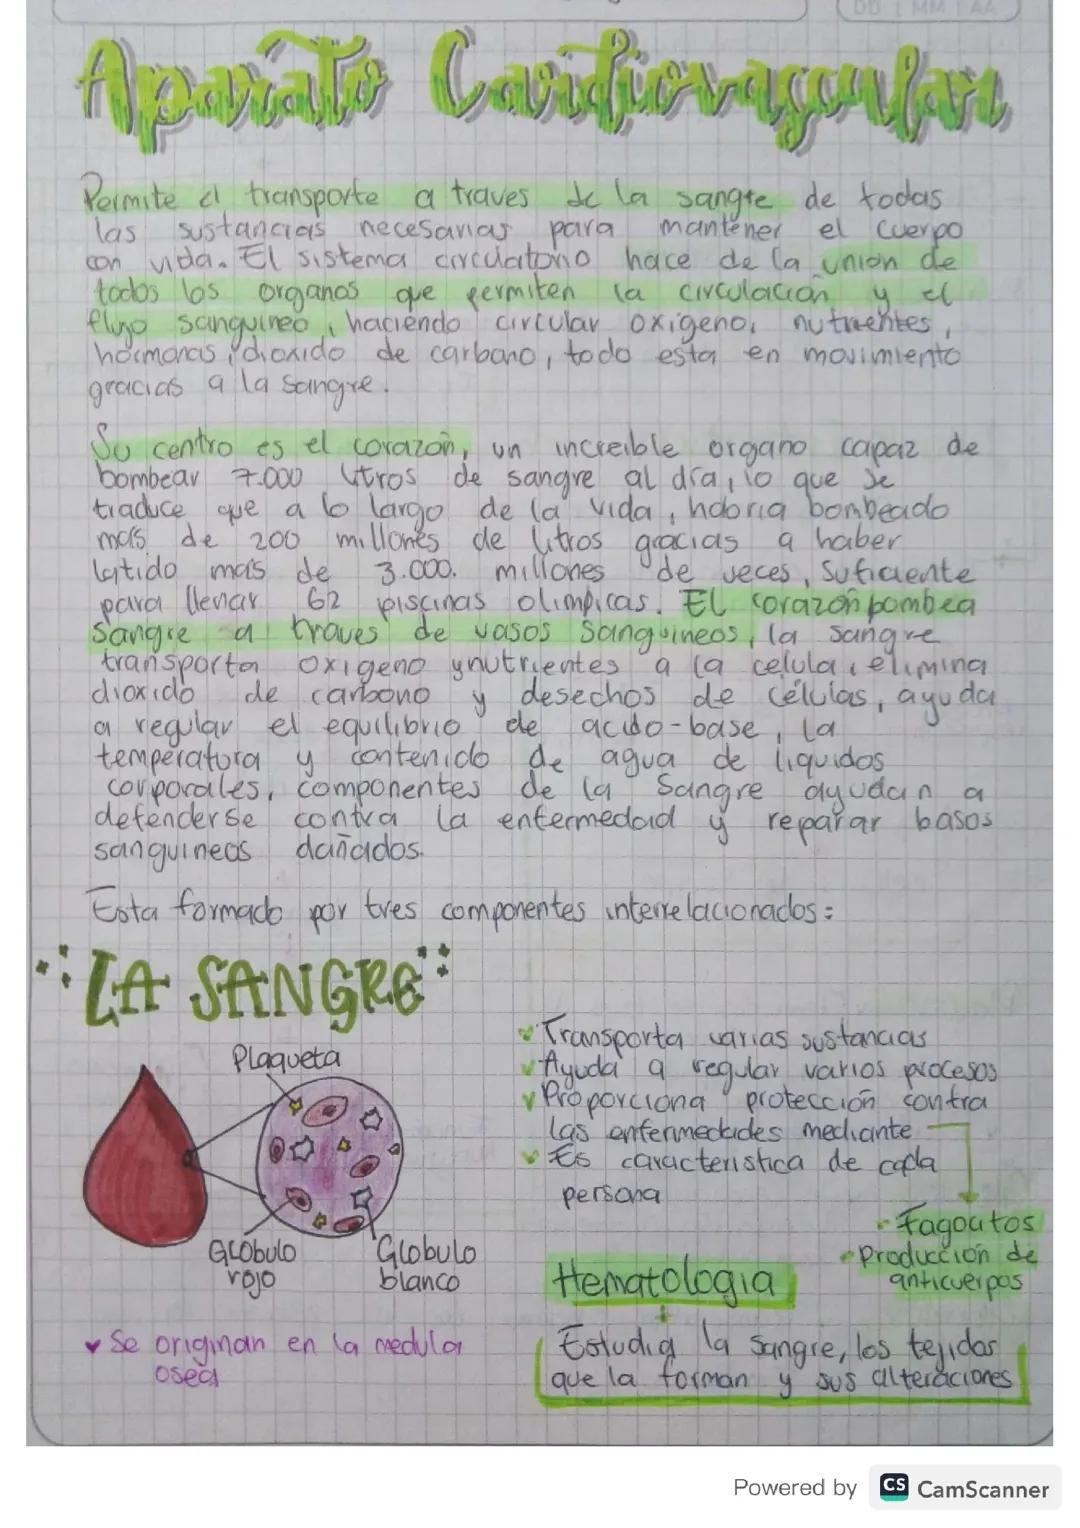 DD | MM | AA
Aparato Cardiovascular
Permite el transporte a traves de la sangre de todas
las sustancias necesarias para mantener el cuerpo
con vida. El sistema circulatorio hace de la union de
todos los organos que permiten la circulación y el
flujo sanguineo, haciendo circular oxigeno, nutrientes,
hormonas, dioxido de carbono, todo esta en movimiento
gracias a la sangre.
Su centro es el corazón, un increible organo capaz de
bombear 7.000 litros de sangre al día, lo que se
traduce que a lo largo de la vida, habria bombeado
más de 200 millones de litros gracias a haber
latido mas de 3.000. millones de veces, suficiente
para llenar 62 piscinas olimpicas. El corazón bombea
sangre a traves de vasos sanguineos, la sangre
transporta oxigeno ynutrientes a la celula, elimina
dioxido de carbono y desechos de células, ayuda
a regular el equilibrio de acido-base, la
temperatura y contenido de agua de liquidos
corporales, componentes de la sangre ayudan a
defenderse contra la enfermedad y reparar basos
sanguineos dañados.
Esta formado por tres componentes interrelacionados:
LA SANGRE
Plaqueta
Globulo
rojo
Globulo
blanco
Se originan en la medula
osea
Transporta varias sustancias
Ayuda a regular varios procesos
Proporciona protección contra
las enfermedades mediante
Es caracteristica de cada
persona
Fagocitos
Producción de
anticuerpos
Hematologia
Estudia la sangre, los tejidos
que la forman y sus alteraciones
Powered by CS CamScanner